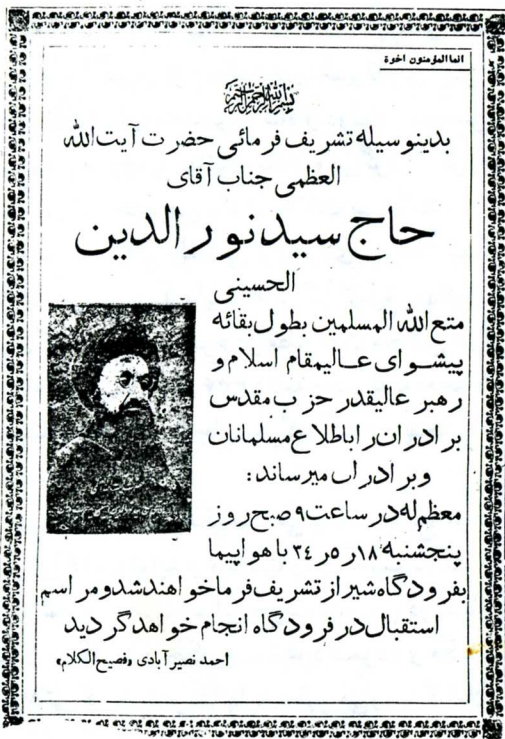 انما المؤمنون اخوة
بسم الله الرحمن الرحیم
بدینوسیله تشریف فرمائی حضرت آیت‌الله
العظمی جناب آقای
حاج سید نورالدین
الحسینی
متع الله المسلمین بطول بقائه
پیشوای عالیمقام اسلام و
رهبر عالیقدر حزب مقدس
برادران را باطلاع مسلمانان
و برادران میرساند:
معظم‌له در ساعت ۹ صبح روز
پنجشنبه ۱۸ر۵ر۳۴ با هواپیما
بفرودگاه شیراز تشریف فرما خواهند شد و مراسم
استقبال در فرودگاه انجام خواهد گردید
احمد نصیرآبادی «فصیح‌الکلام»